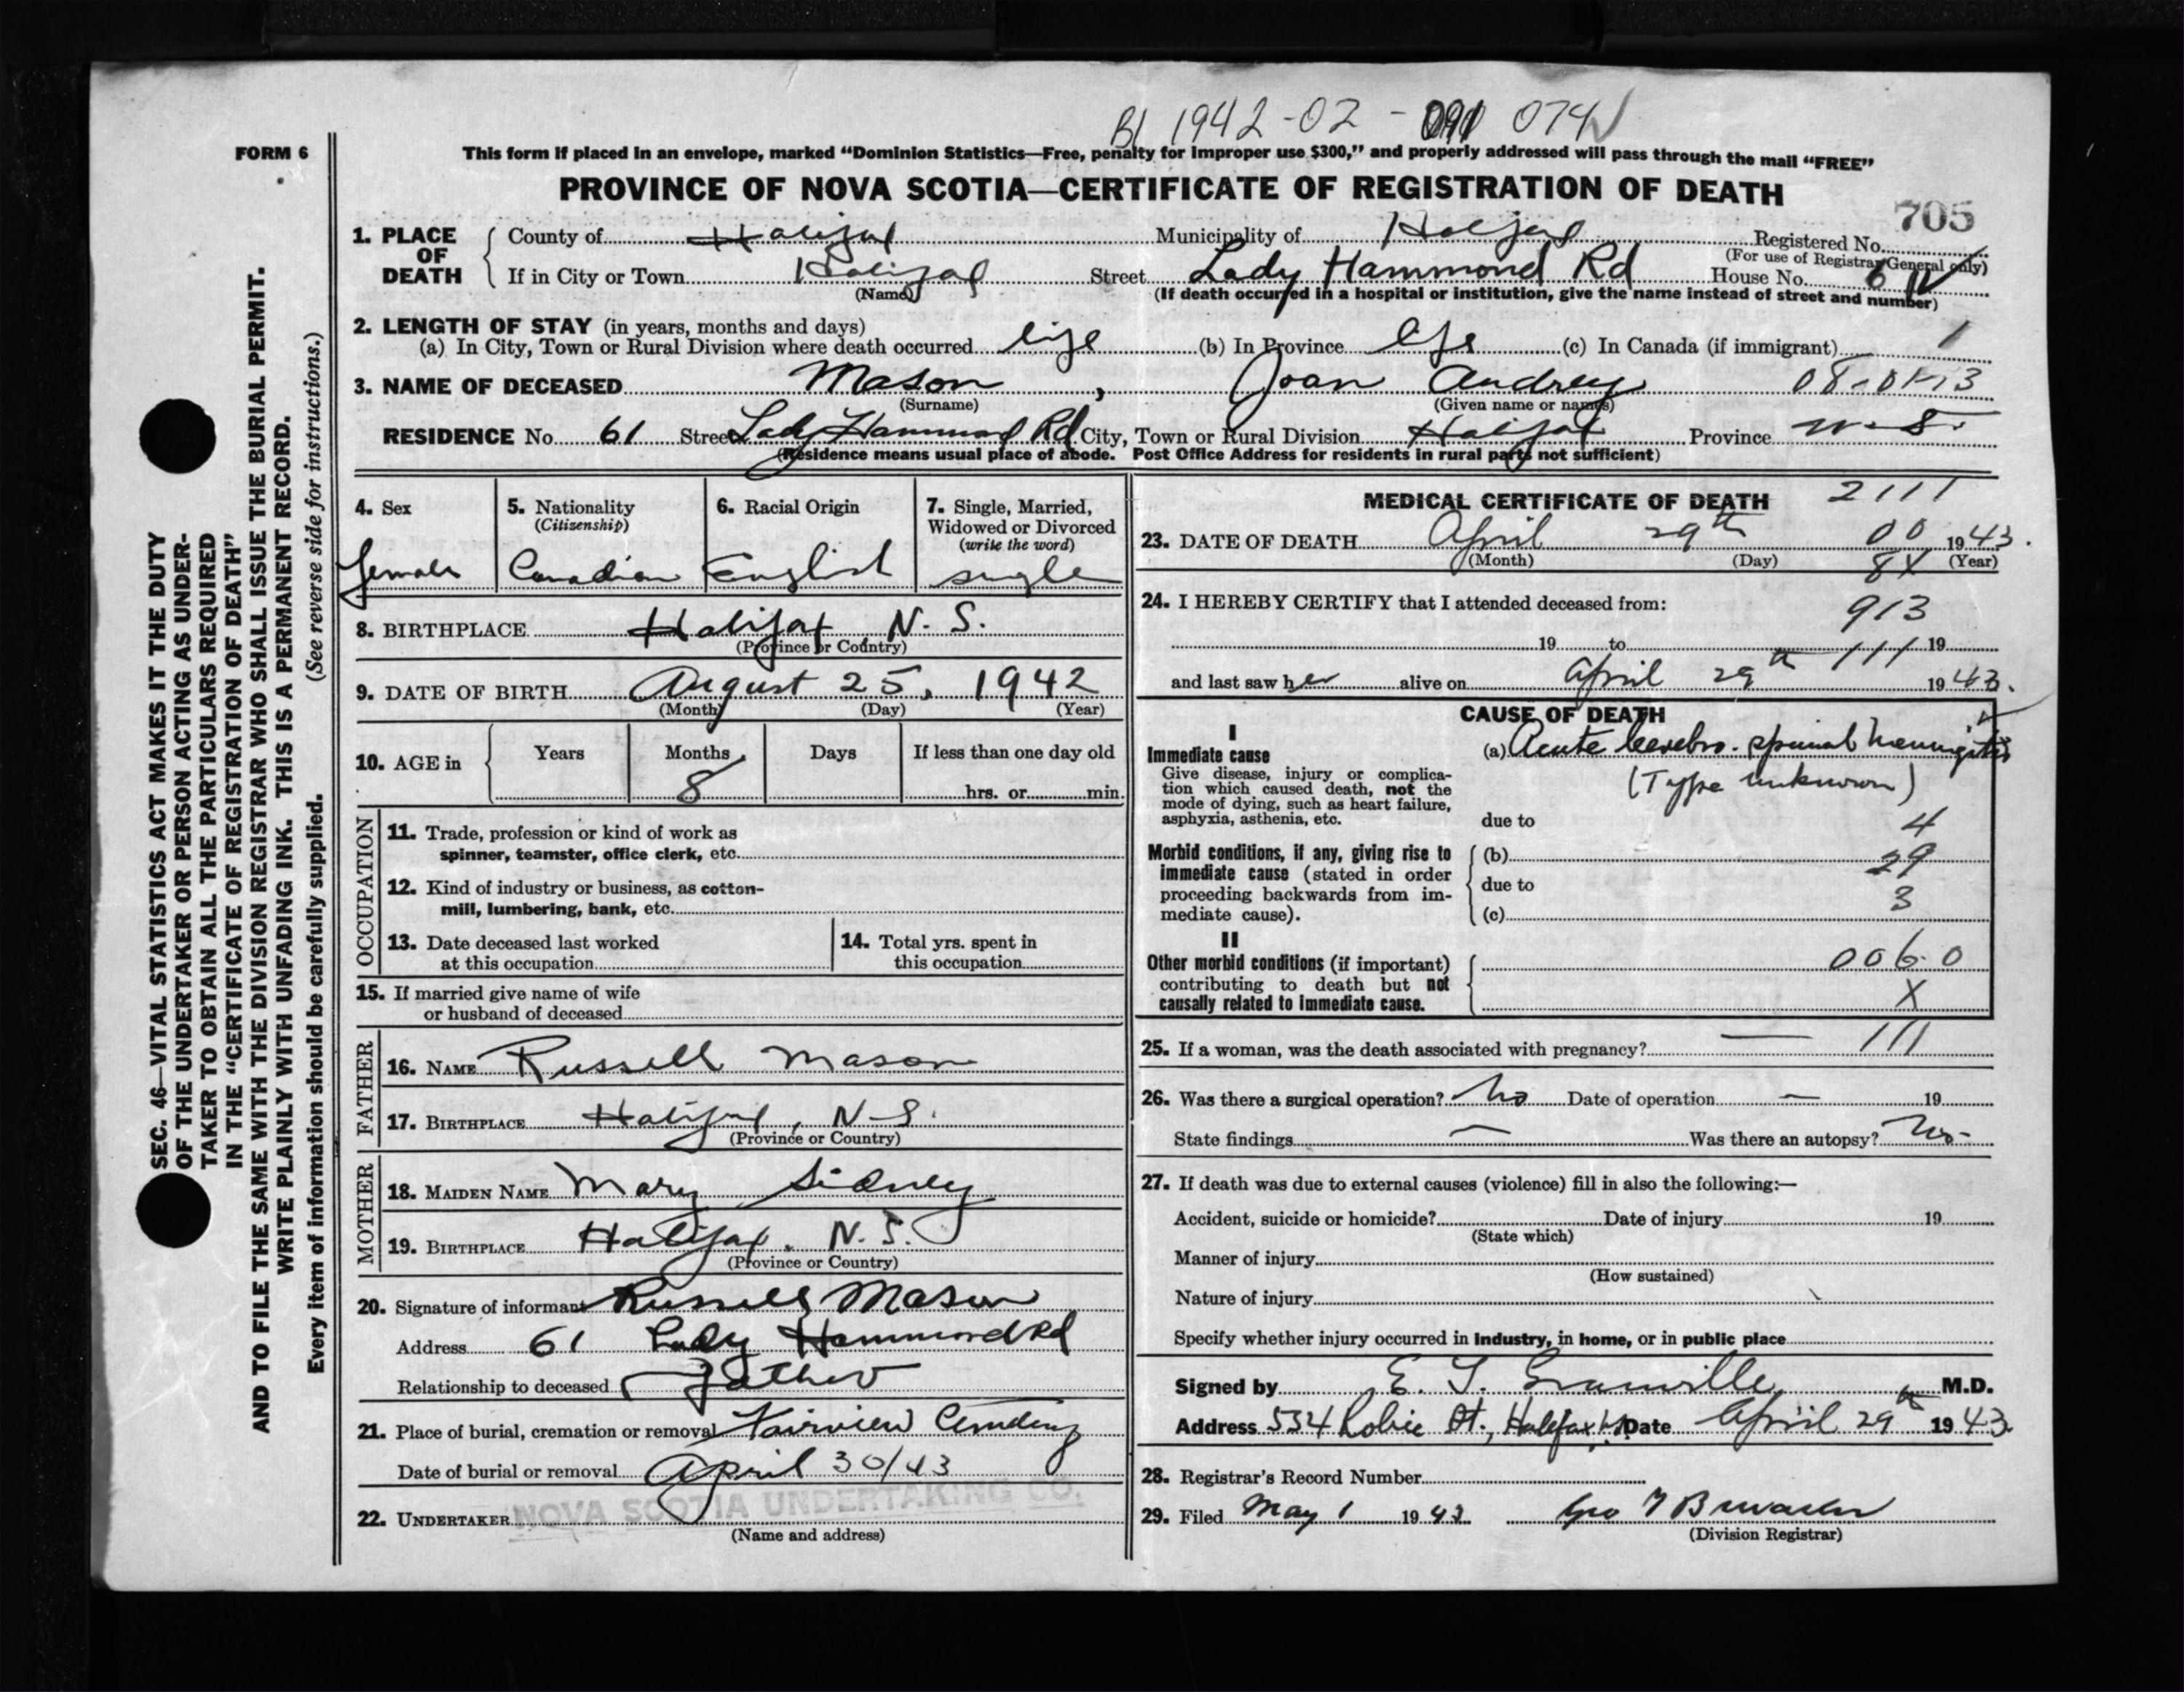 B1 1942-02- 091 074
FORM 6
This form if placed in an envelope, marked “Dominion Statistics—Free, penalty for improper use $300,” and properly addressed will pass through the mail “FREE”
PROVINCE OF NOVA SCOTIA—CERTIFICATE OF REGISTRATION OF DEATH
705
1. PLACE OF DEATH
County of Halifax Municipality of Halifax Registered No.
(For use of Registrar General only)
If in City or Town Halifax Street Lady Hammond Rd House No.
(Name) (If death occurred in a hospital or institution, give the name instead of street and number)
2. LENGTH OF STAY (in years, months and days)
(a) In City, Town or Rural Division where death occurred life (b) In Province life (c) In Canada (if immigrant) 1
3. NAME OF DECEASED Mason, Joan Audrey 08-01-13
(Surname) (Given name or names)
RESIDENCE No. 61 Street Lady Hammond Rd City, Town or Rural Division Halifax Province N.S.
(Residence means usual place of abode. Post Office Address for residents in rural parts not sufficient)
4. Sex
Female
5. Nationality
(Citizenship)
Canadian
6. Racial Origin
English
7. Single, Married,
Widowed or Divorced
(write the word)
single
8. BIRTHPLACE Halifax, N.S.
(Province or Country)
9. DATE OF BIRTH August 25, 1942
(Month) (Day) (Year)
10. AGE in Years Months Days If less than one day old
8 hrs. or min.
OCCUPATION
11. Trade, profession or kind of work as
spinner, teamster, office clerk, etc.
12. Kind of industry or business, as cotton-
mill, lumbering, bank, etc.
13. Date deceased last worked
at this occupation
14. Total yrs. spent in
this occupation
15. If married give name of wife
or husband of deceased
FATHER
16. NAME Russell Mason
17. BIRTHPLACE Halifax, N-S.
(Province or Country)
MOTHER
18. MAIDEN NAME Mary Sidney
19. BIRTHPLACE Halifax. N.S.
(Province or Country)
20. Signature of informant Russell Mason
Address 61 Lady Hammond Rd
Relationship to deceased Father
21. Place of burial, cremation or removal Fairview Cemetery
Date of burial or removal April 30/43
22. UNDERTAKER NOVA SCOTIA UNDERTAKING CO.
(Name and address)
MEDICAL CERTIFICATE OF DEATH 2111
23. DATE OF DEATH April 29th 00 1943.
(Month) (Day) 8X (Year)
24. I HEREBY CERTIFY that I attended deceased from: 913
19 to 111 19
and last saw her alive on April 29th 1943.
CAUSE OF DEATH
I
Immediate cause
Give disease, injury or complica-
tion which caused death, not the
mode of dying, such as heart failure,
asphyxia, asthenia, etc.
(a) Acute Cerebro-spinal meningitis
(Type unknown)
due to 4
Morbid conditions, if any, giving rise to
immediate cause (stated in order
proceeding backwards from im-
mediate cause).
(b) 29
due to
(c) 3
II
Other morbid conditions (if important)
contributing to death but not
causally related to immediate cause.
006.0
X
25. If a woman, was the death associated with pregnancy? — 111
26. Was there a surgical operation? No Date of operation — 19
State findings — Was there an autopsy? No-
27. If death was due to external causes (violence) fill in also the following:—
Accident, suicide or homicide? Date of injury 19
(State which)
Manner of injury
(How sustained)
Nature of injury
Specify whether injury occurred in industry, in home, or in public place
Signed by E. Granville M.D.
Address 534 Robie St., Halifax Date April 29th 1943
28. Registrar's Record Number
29. Filed May 1 1943
(Division Registrar)
SEC. 46—VITAL STATISTICS ACT MAKES IT THE DUTY
OF THE UNDERTAKER OR PERSON ACTING AS UNDER-
TAKER TO OBTAIN ALL THE PARTICULARS REQUIRED
IN THE “CERTIFICATE OF REGISTRATION OF DEATH”
AND TO FILE THE SAME WITH THE DIVISION REGISTRAR WHO SHALL ISSUE THE BURIAL PERMIT.
WRITE PLAINLY WITH UNFADING INK. THIS IS A PERMANENT RECORD.
Every item of information should be carefully supplied. (See reverse side for instructions.)